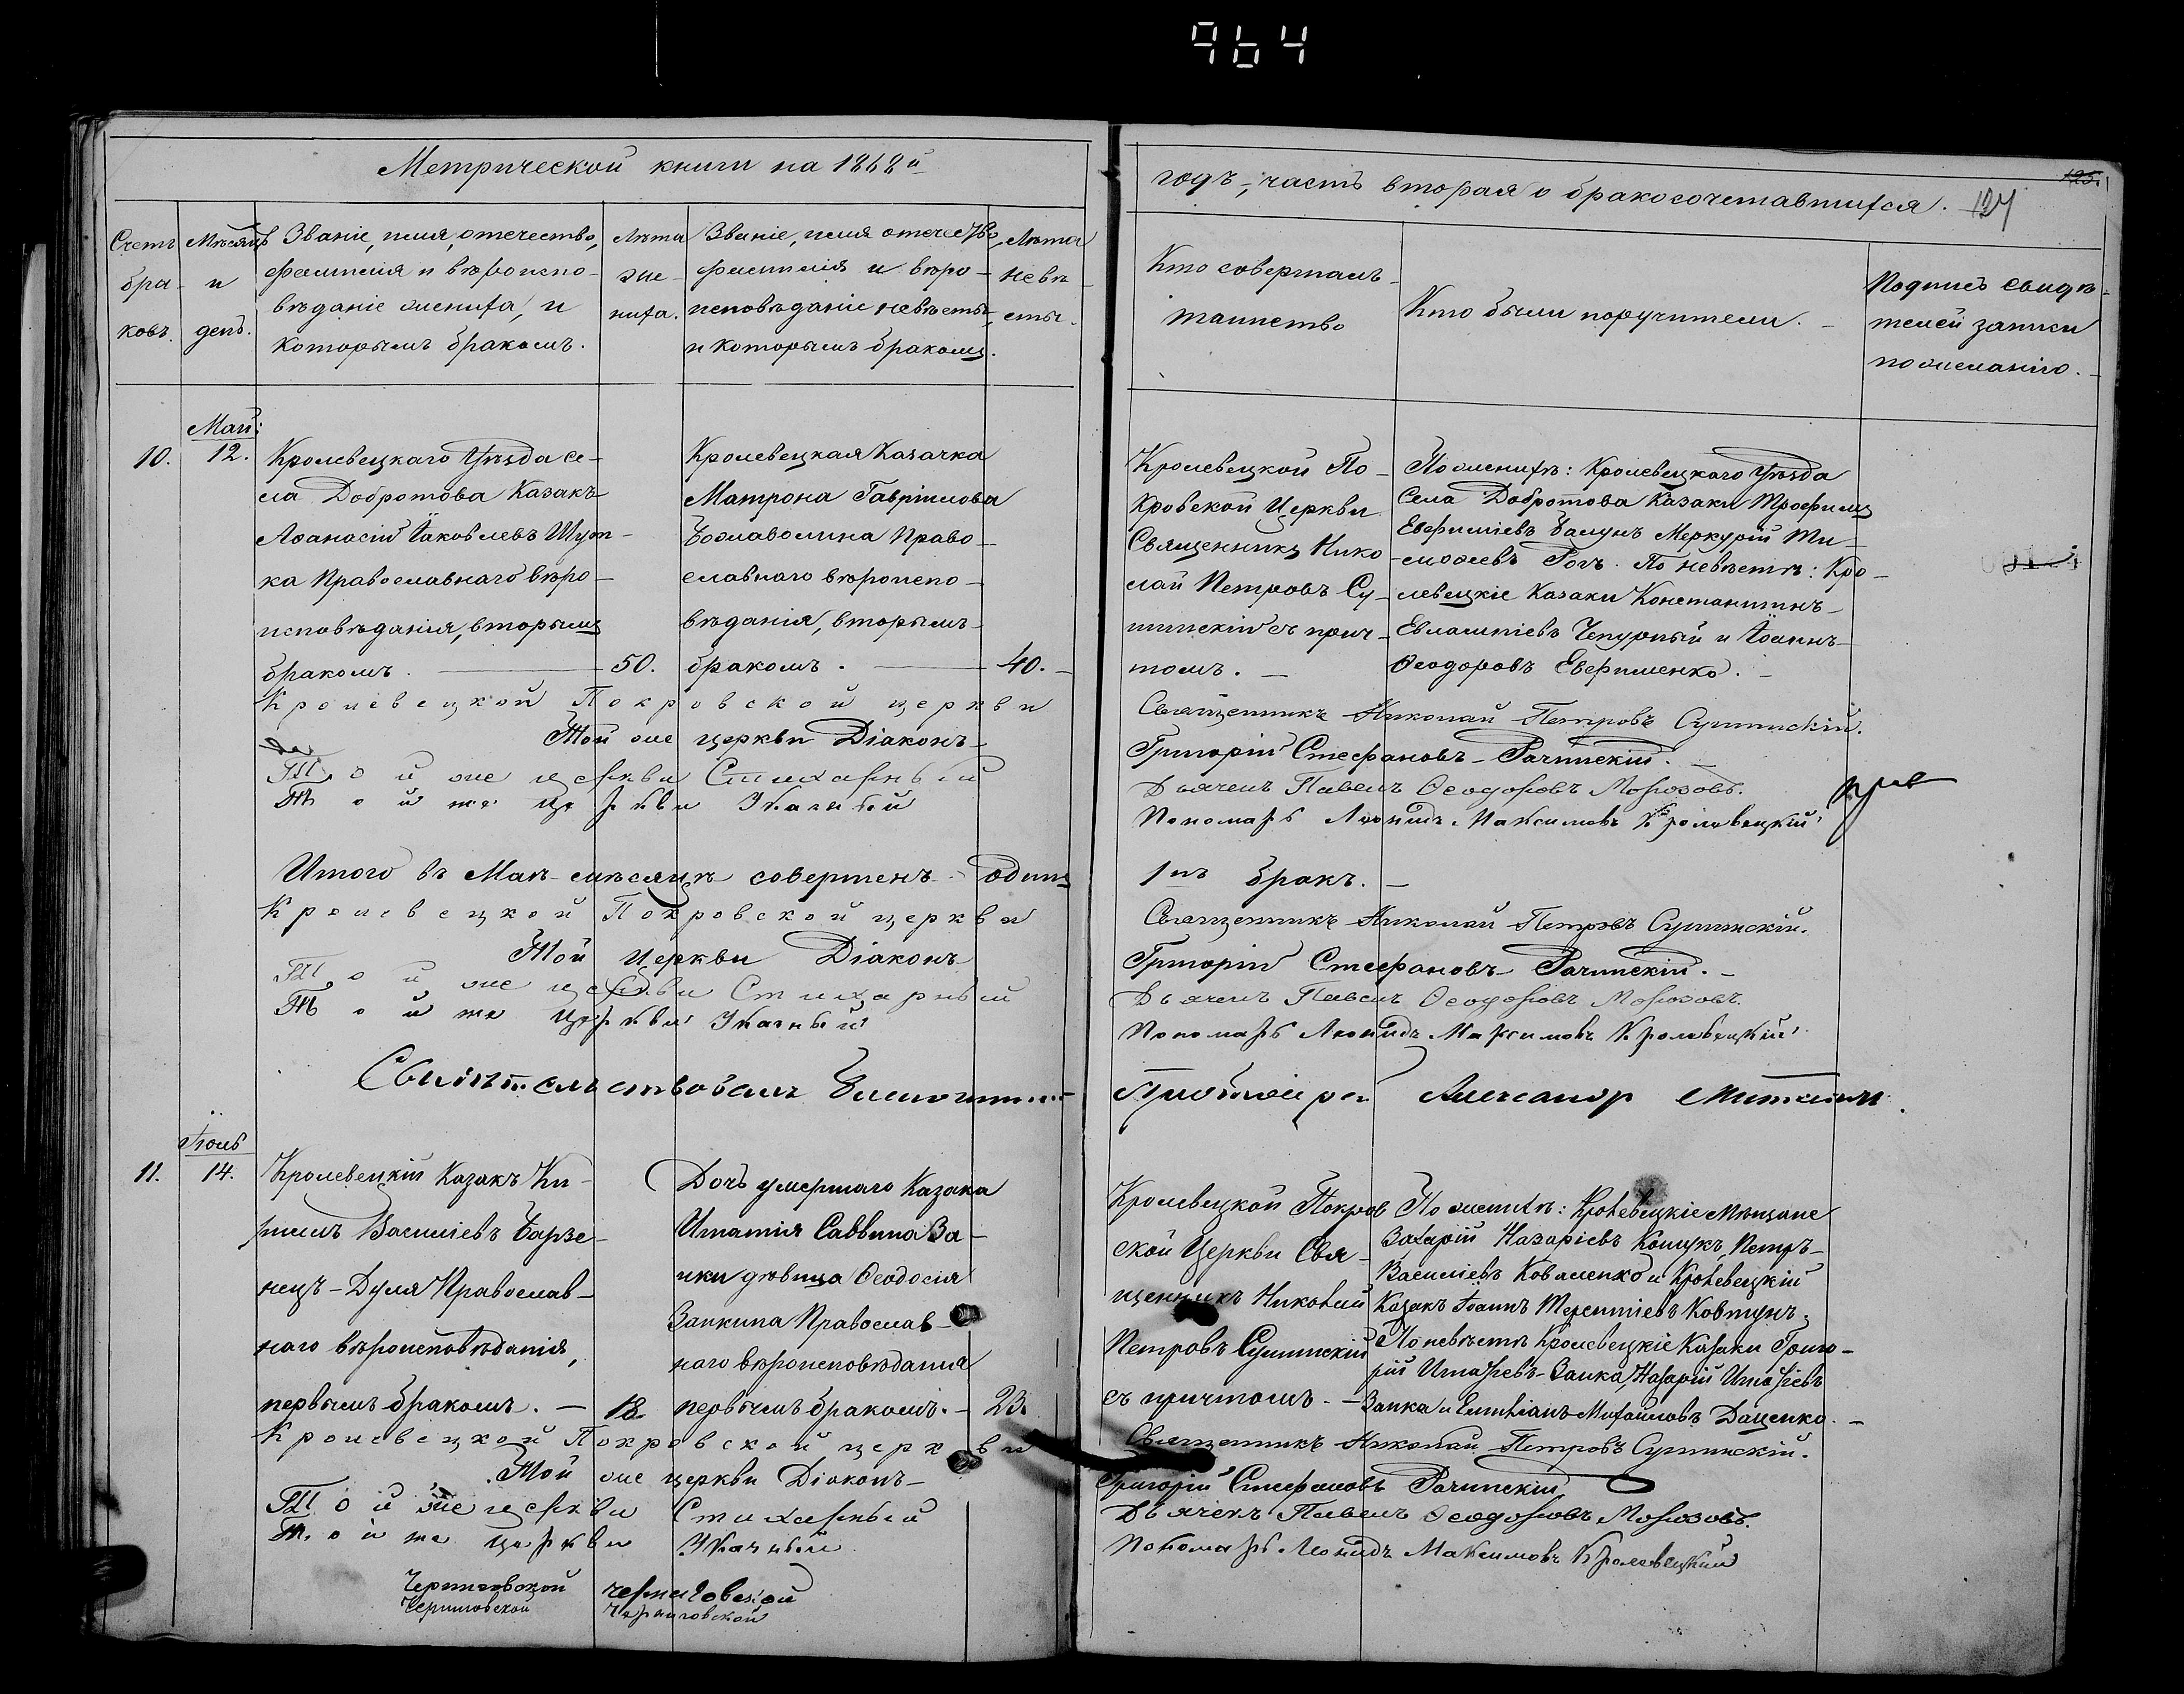 964
Метрической книги на 1868й
годъ, часть вторая о бракосочетавшихся.
125.
127
Счетъ
бра-
ковъ.
Мѣсяцъ
и
день.
Званіе, имя, отечество,
фамилія и вѣроиспо-
вѣданіе жениха, и
которымъ бракомъ.
Лѣта
же-
ниха.
Званіе, имя отечество,
фамилія и вѣро-
исповѣданіе невѣсты,
и которымъ бракомъ.
Лѣта
невѣ-
сты.
Кто совершалъ
таинство
Кто были поручители.
Подпись свидѣ-
телей записи
по желанію.
10.
Май:
12.
Кролевецкаго Уѣзда се-
ла Добротова Казакъ
Аѳанасій Іаковлевъ
ка Православнаго вѣро-
исповѣданія, вторымъ
бракомъ.
50.
Кролевецкая Казачка
Матрона Гавріилова
Право-
славнаго вѣроиспо-
вѣданія, вторымъ
бракомъ.
40.
Кролевецкой По-
кровской Церкви
Священникъ Нико-
лай Петровъ Су-
шинскій съ прич-
томъ.
По женихѣ: Кролевецкаго Уѣзда
Села Добротова Казаки Трофимъ
Евфиміевъ Меркурій Ти-
моѳеевъ Рогъ. По невѣстѣ: Кро-
левецкіе Казаки Константинъ
Евлампіевъ Чепурный и Іоаннъ
Ѳеодоровъ Евфименко.
Кролевецкой Покровской церкви
Священникъ Николай Петровъ Сушинскій.
Той же церкви Діаконъ
Григорій Стефановъ Рачинскій.
Той же церкви Стихарный
Дьячекъ Павелъ Ѳеодоровъ Морозовъ.
Той же Церкви Указный
Пономарь Леонидъ Максимовъ Кролевецкій
Итого въ Маѣ мѣсяцѣ совершенъ одинъ
1нъ бракъ.
Кролевецкой Покровской церкви
Священникъ Николай Петровъ Сушинскій.
Той церкви Діаконъ
Григорій Стефановъ Рачинскій.
Той же церкви Стихарный
Дьячекъ Павелъ Ѳеодоровъ Морозовъ.
Той же Церкви Указный
Пономарь Леонидъ Максимовъ Кролевецкій
Свидѣтельствовалъ
Александр
11.
Іюль
14.
Кролевецкій Казакъ Ки-
риллъ Василіевъ Барзе-
нецъ-Дуля Православ-
наго вѣроисповѣданія,
первымъ бракомъ.
18
Дочь умершаго Казака
Игнатія Саввина За-
ики дѣвица Ѳеодосія
Заикина Православ-
наго вѣроисповѣданія
первымъ бракомъ.
23.
Кролевецкой Покров
ской Церкви Свя-
щенникъ Николай
Петровъ Сушинскій
съ причтомъ.
По женихѣ: Кролевецкіе Мѣщане
Захарій Назаріевъ Петръ
Василіевъ Коваленко и Кролевецкій
Казакъ Іоаннъ Терентіевъ Ковтунъ.
По невѣстѣ Кролевецкіе Казаки Григо-
рій Игнатіевъ Заика, Назарій Игнатіевъ
Заика и Емиліанъ Михайловъ Даценко.
Кролевецкой Покровской церкви
Священникъ Николай Петровъ Сушинскій.
Той же церкви Діаконъ
Григорій Стефановъ Рачинскій
Той же церкви Стихарный
Дьячекъ Павелъ Ѳеодоровъ Морозовъ.
Той же церкви Указный
Пономарь Леонидъ Максимовъ Кролевецкій
Черниговской Черниговской
Черниговской Черниговской